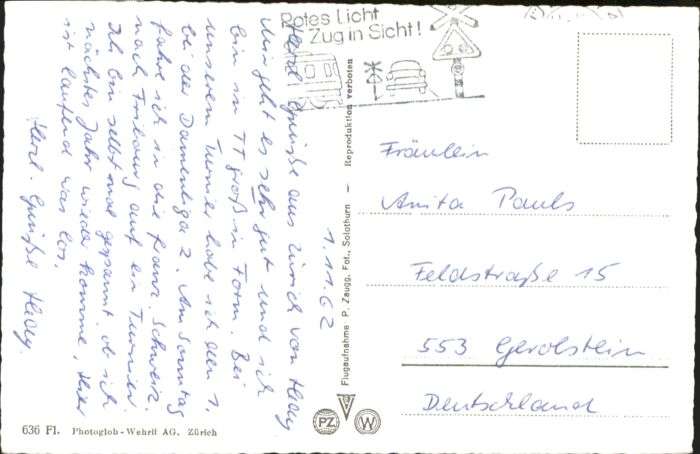 Rotes Licht
Zug in Sicht!
1.11.62
Herzl. Grüße aus Zürich von Hedy
Mir geht es sehr gut und ich
bin in TT groß in Form. Bei
unserem Turnier habe ich den 1.
bei der Damenliga 2. Am Sonntag
fahre ich in die franz. Schweiz
nach Fribourg auf ein Turnier.
Ich bin selbst mal gespannt ob ich
nächstes Jahr wieder komme, Hier
ist laufend was los.
Herzl. Grüße Hedy.
Fräulein
Anita Pauls
Feldstraße 15
553 Gerolstein
Deutschland
Flugaufnahme P. Zaugg, Fot., Solothurn – Reproduktion verboten
PZ W
636 Fl. Photoglob-Wehrli AG, Zürich